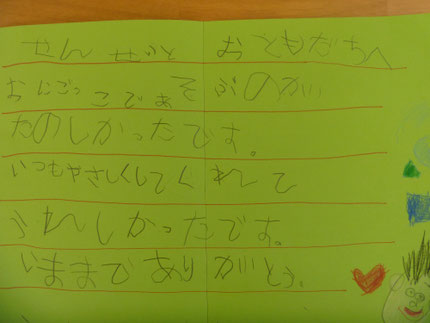 せんせいと おともだちへ
おにごっこであそぶのが
たのしかったです。
いつもやさしくしてくれて
うれしかったです。
いままでありがとう。